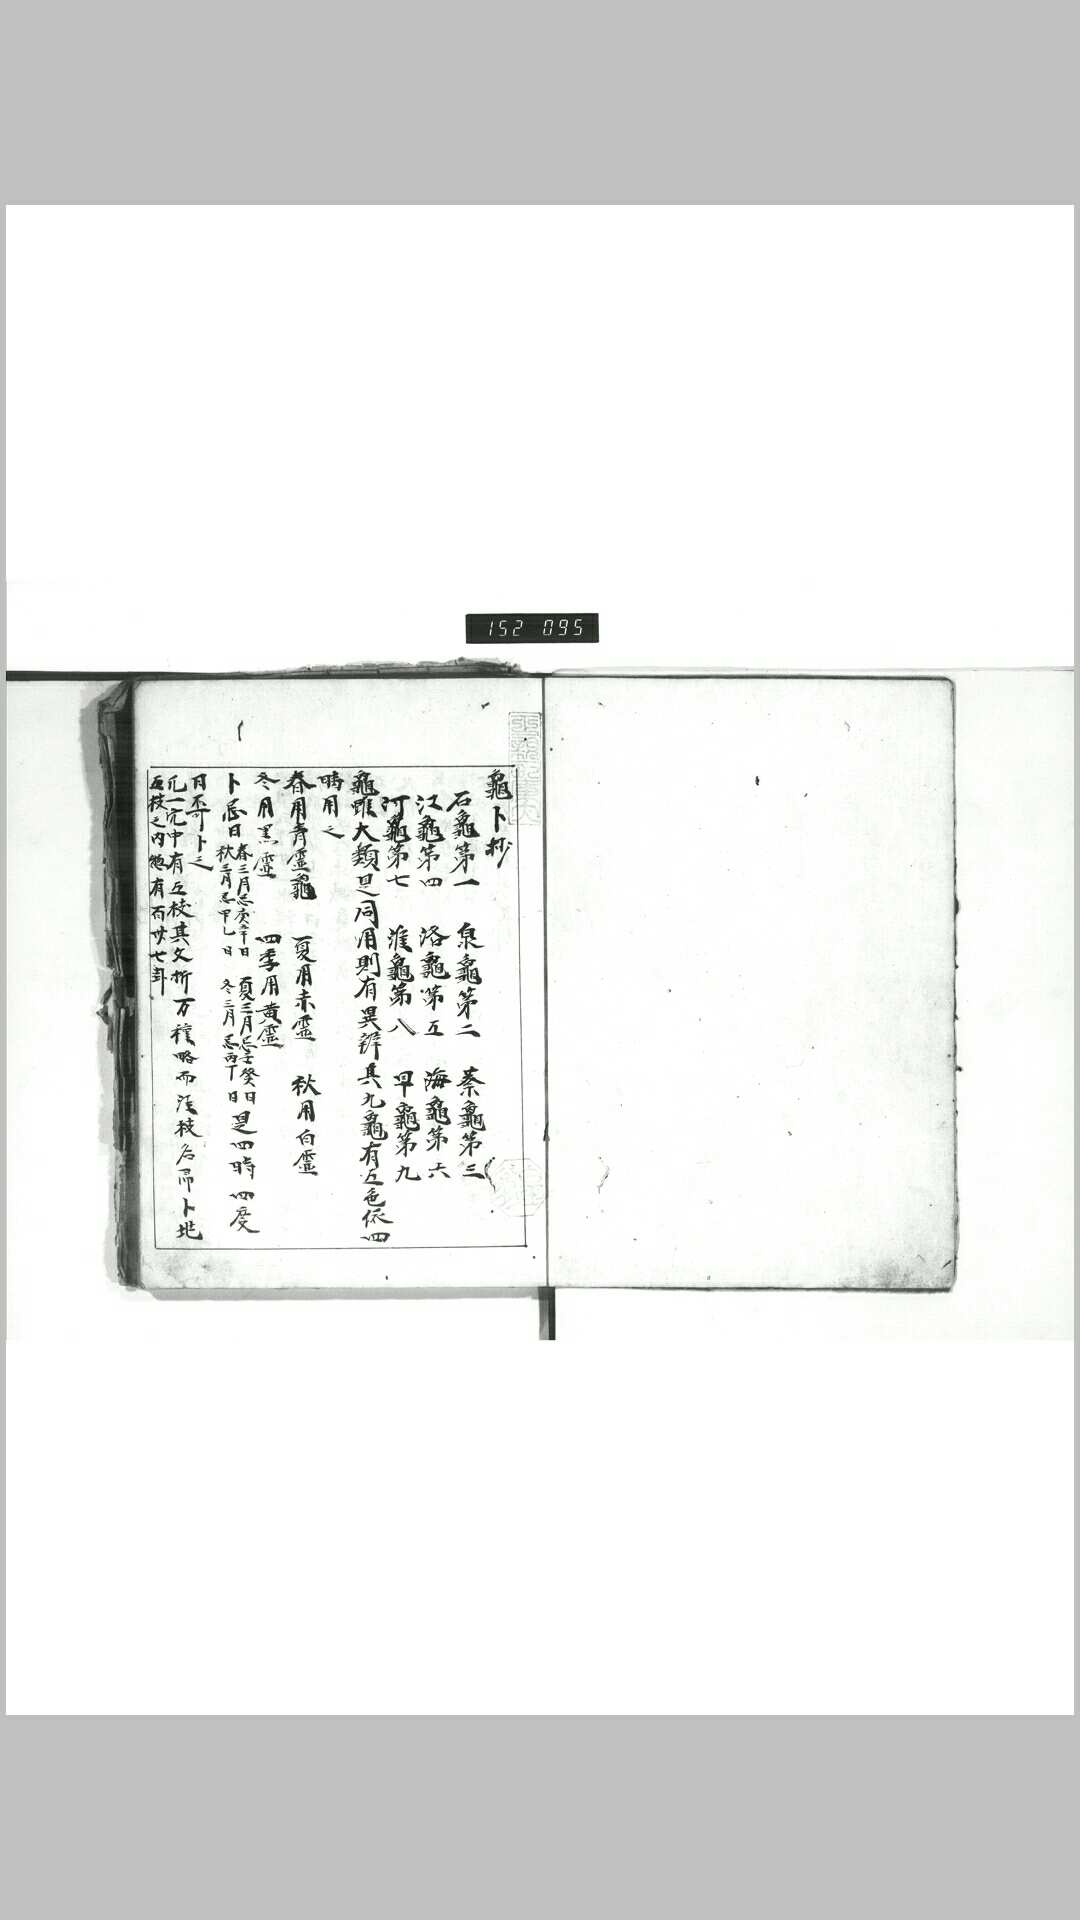 152 095
龜卜抄
石龜第一 泉龜第二 蔡龜第三
江龜第四 洛龜第五 海龜第六
河龜第七 淮龜第八 旱龜第九
龜雖大類是同用則有異辨其九龜有五色依四
時用之
春用青靈龜 夏用赤靈 秋用白靈
冬用黒靈 四季用黄靈
卜忌日 春三月忌庚辛日 夏三月忌壬癸日
秋三月忌甲乙日 冬三月忌丙丁日 是四時四度
日不可卜之
凡一穴中有五枝其文折万種略而注枝名帶卜地
五枝之内惣有百廿七卦